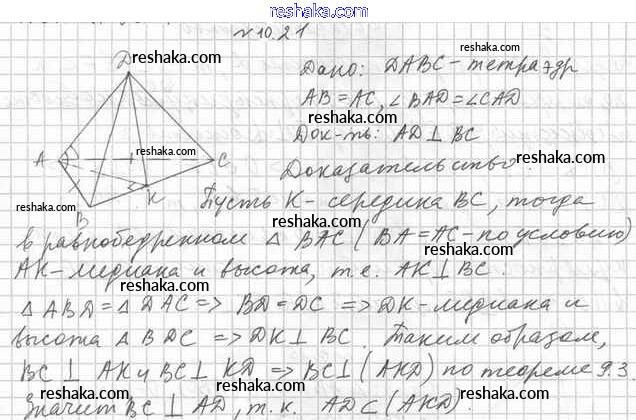 reshaka.com
№10.21
Дано: DABC - тетраэдр
AB = AC, ∠BAD = ∠CAD
Док-ть: AD ⊥ BC
Доказательство.
D
A
C
B
K
Пусть K - середина BC, тогда
в равнобедренном △ BAC (BA = AC - по условию)
AK - медиана и высота, т.е. AK ⊥ BC.
△ ABD = △ DAC => BD = DC => DK - медиана и
высота △ BDC => DK ⊥ BC. Таким образом,
BC ⊥ AK и BC ⊥ KD => BC ⊥ (AKD) по теореме 9.3.
Значит BC ⊥ AD, т.к. AD ⊂ (AKD).
reshaka.com
reshaka.com
reshaka.com
reshaka.com
reshaka.com
reshaka.com
reshaka.com
reshaka.com
reshaka.com
reshaka.com
reshaka.com
reshaka.com